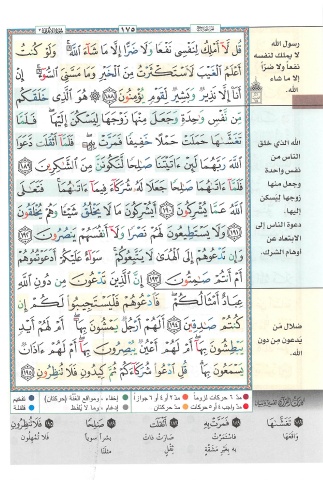 ١٧٥
قُل لَّآ أَمْلِكُ لِنَفْسِى نَفْعًا وَلَا ضَرًّا إِلَّا مَا شَآءَ ٱللَّهُ ۚ وَلَوْ كُنتُ
أَعْلَمُ ٱلْغَيْبَ لَٱسْتَكْثَرْتُ مِنَ ٱلْخَيْرِ وَمَا مَسَّنِىَ ٱلسُّوٓءُ ۚ إِنْ
أَنَا۠ إِلَّا نَذِيرٌ وَبَشِيرٌ لِّقَوْمٍ يُؤْمِنُونَ ﴿١٨٨﴾ هُوَ ٱلَّذِى خَلَقَكُم
مِّن نَّفْسٍ وَٰحِدَةٍ وَجَعَلَ مِنْهَا زَوْجَهَا لِيَسْكُنَ إِلَيْهَا ۖ فَلَمَّا
تَغَشَّىٰهَا حَمَلَتْ حَمْلًا خَفِيفًا فَمَرَّتْ بِهِۦ ۖ فَلَمَّآ أَثْقَلَت دَّعَوَا
ٱللَّهَ رَبَّهُمَا لَئِنْ ءَاتَيْتَنَا صَٰلِحًا لَّنَكُونَنَّ مِنَ ٱلشَّٰكِرِينَ ﴿١٨٩﴾
فَلَمَّآ ءَاتَىٰهُمَا صَٰلِحًا جَعَلَا لَهُۥ شُرَكَآءَ فِيمَآ ءَاتَىٰهُمَا ۚ فَتَعَٰلَى
ٱللَّهُ عَمَّا يُشْرِكُونَ ﴿١٩٠﴾ أَيُشْرِكُونَ مَا لَا يَخْلُقُ شَيْـًٔا وَهُمْ يُخْلَقُونَ
﴿١٩١﴾ وَلَا يَسْتَطِيعُونَ لَهُمْ نَصْرًا وَلَآ أَنفُسَهُمْ يَنصُرُونَ ﴿١٩٢﴾
وَإِن تَدْعُوهُمْ إِلَى ٱلْهُدَىٰ لَا يَتَّبِعُوكُمْ ۚ سَوَآءٌ عَلَيْكُمْ أَدَعَوْتُمُوهُمْ
أَمْ أَنتُمْ صَٰمِتُونَ ﴿١٩٣﴾ إِنَّ ٱلَّذِينَ تَدْعُونَ مِن دُونِ ٱللَّهِ
عِبَادٌ أَمْثَالُكُمْ ۖ فَٱدْعُوهُمْ فَلْيَسْتَجِيبُوا۟ لَكُمْ إِن
كُنتُمْ صَٰدِقِينَ ﴿١٩٤﴾ أَلَهُمْ أَرْجُلٌ يَمْشُونَ بِهَآ ۖ أَمْ لَهُمْ أَيْدٍ
يَبْطِشُونَ بِهَآ ۖ أَمْ لَهُمْ أَعْيُنٌ يُبْصِرُونَ بِهَآ ۖ أَمْ لَهُمْ ءَاذَانٌ
يَسْمَعُونَ بِهَا ۗ قُلِ ٱدْعُوا۟ شُرَكَآءَكُمْ ثُمَّ كِيدُونِ فَلَا تُنظِرُونِ ﴿١٩٥﴾
رسول الله
لا يملك لنفسه
نفعاً ولا ضرّاً
إلا ما شاء
الله.
الله الذي خلق
الناس من
نفس واحدة
وجعل منها
زوجها ليسكن
إليها.
دعوة الناس إلى
الابتعاد عن
أوهام الشرك.
ضلال من
يدعون من دون
الله.
مدّ ٦ حركات لزوماً مدّ ٢ أو ٤ أو ٦ جوازاً إخفاء، ومواقع الغُنَّة (حركتان) تفخيم
مدّ واجب ٤ أو ٥ حركات مدّ حركتان إدغام، وما لا يُلفظ قلقلة
تَغَشَّاهَا
وَاقَعَهَا
فَمَرَّتْ بِهِ
فَاسْتَمَرَّتْ
بِهِ بِغَيْرِ مَشَقَّةٍ
أَثْقَلَت
صَارَتْ ذَاتَ
ثِقَلٍ
صَالِحًا
بَشَراً سَوِيّاً
مِثْلَنَا
فَلَا تُنظِرُونِ
فَلَا تُمْهِلُونِ